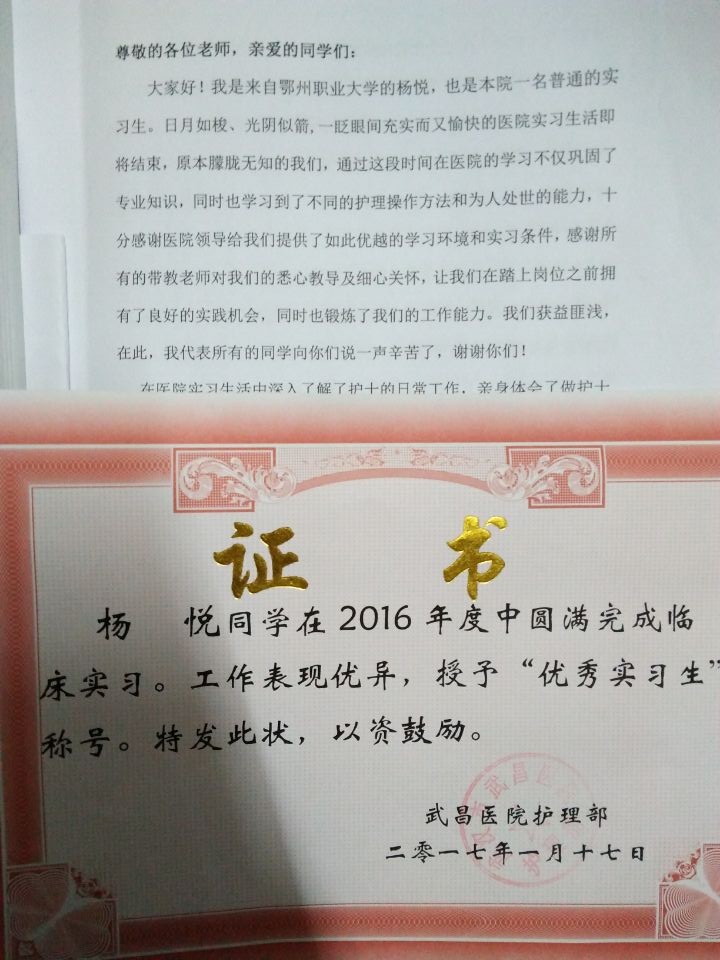 尊敬的各位老师，亲爱的同学们：
大家好！我是来自鄂州职业大学的杨悦，也是本院一名普通的实
习生。日月如梭、光阴似箭,一眨眼间充实而又愉快的医院实习生活即
将结束，原本朦胧无知的我们，通过这段时间在医院的学习不仅巩固了
专业知识，同时也学习到了不同的护理操作方法和为人处世的能力，十
分感谢医院领导给我们提供了如此优越的学习环境和实习条件，感谢所
有的带教老师对我们的悉心教导及细心关怀，让我们在踏上岗位之前拥
有了良好的实践机会，同时也锻炼了我们的工作能力。我们获益匪浅，
在此，我代表所有的同学向你们说一声辛苦了，谢谢你们！
在医院实习生活中深入了解了护士的日常工作，亲身体会了做护士
证 书
杨 悦同学在 2016 年度中圆满完成临
床实习。工作表现优异，授予“优秀实习生”
称号。特发此状，以资鼓励。
武昌医院护理部
二零一七年一月十七日